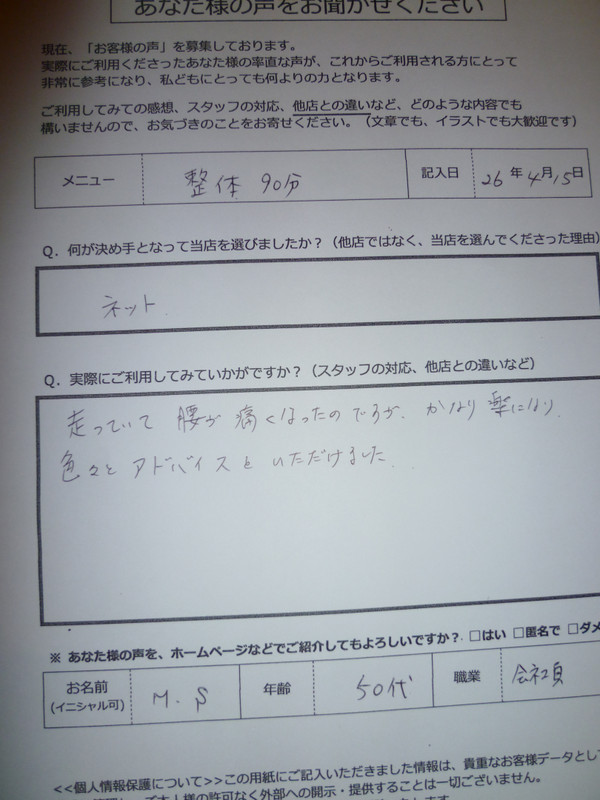 あなた様の声をお聞かせください
現在、「お客様の声」を募集しております。
実際にご利用くださったあなた様の率直な声が、これからご利用される方にとって
非常に参考になり、私どもにとっても何よりの力となります。
ご利用してみての感想、スタッフの対応、他店との違いなど、どのような内容でも
構いませんので、お気づきのことをお寄せください。（文章でも、イラストでも大歓迎です）
メニュー 整体 90分 記入日 26年4月15日
Q．何が決め手となって当店を選びましたか？（他店ではなく、当店を選んでくださった理由）
ネット
Q．実際にご利用してみていかがですか？（スタッフの対応、他店との違いなど）
走っていて 腰が 痛くなったのですが、かなり 楽になり、
色々と アドバイスを いただけました。
※ あなた様の声を、ホームページなどでご紹介してもよろしいですか？ □はい □匿名で □ダメ
お名前 M.S 年齢 50代 職業 会社員
(イニシャル可)
<<個人情報保護について>>この用紙にご記入いただきました情報は、貴重なお客様データとして
ご本人様の許可なく外部への開示・提供することは一切ございません。